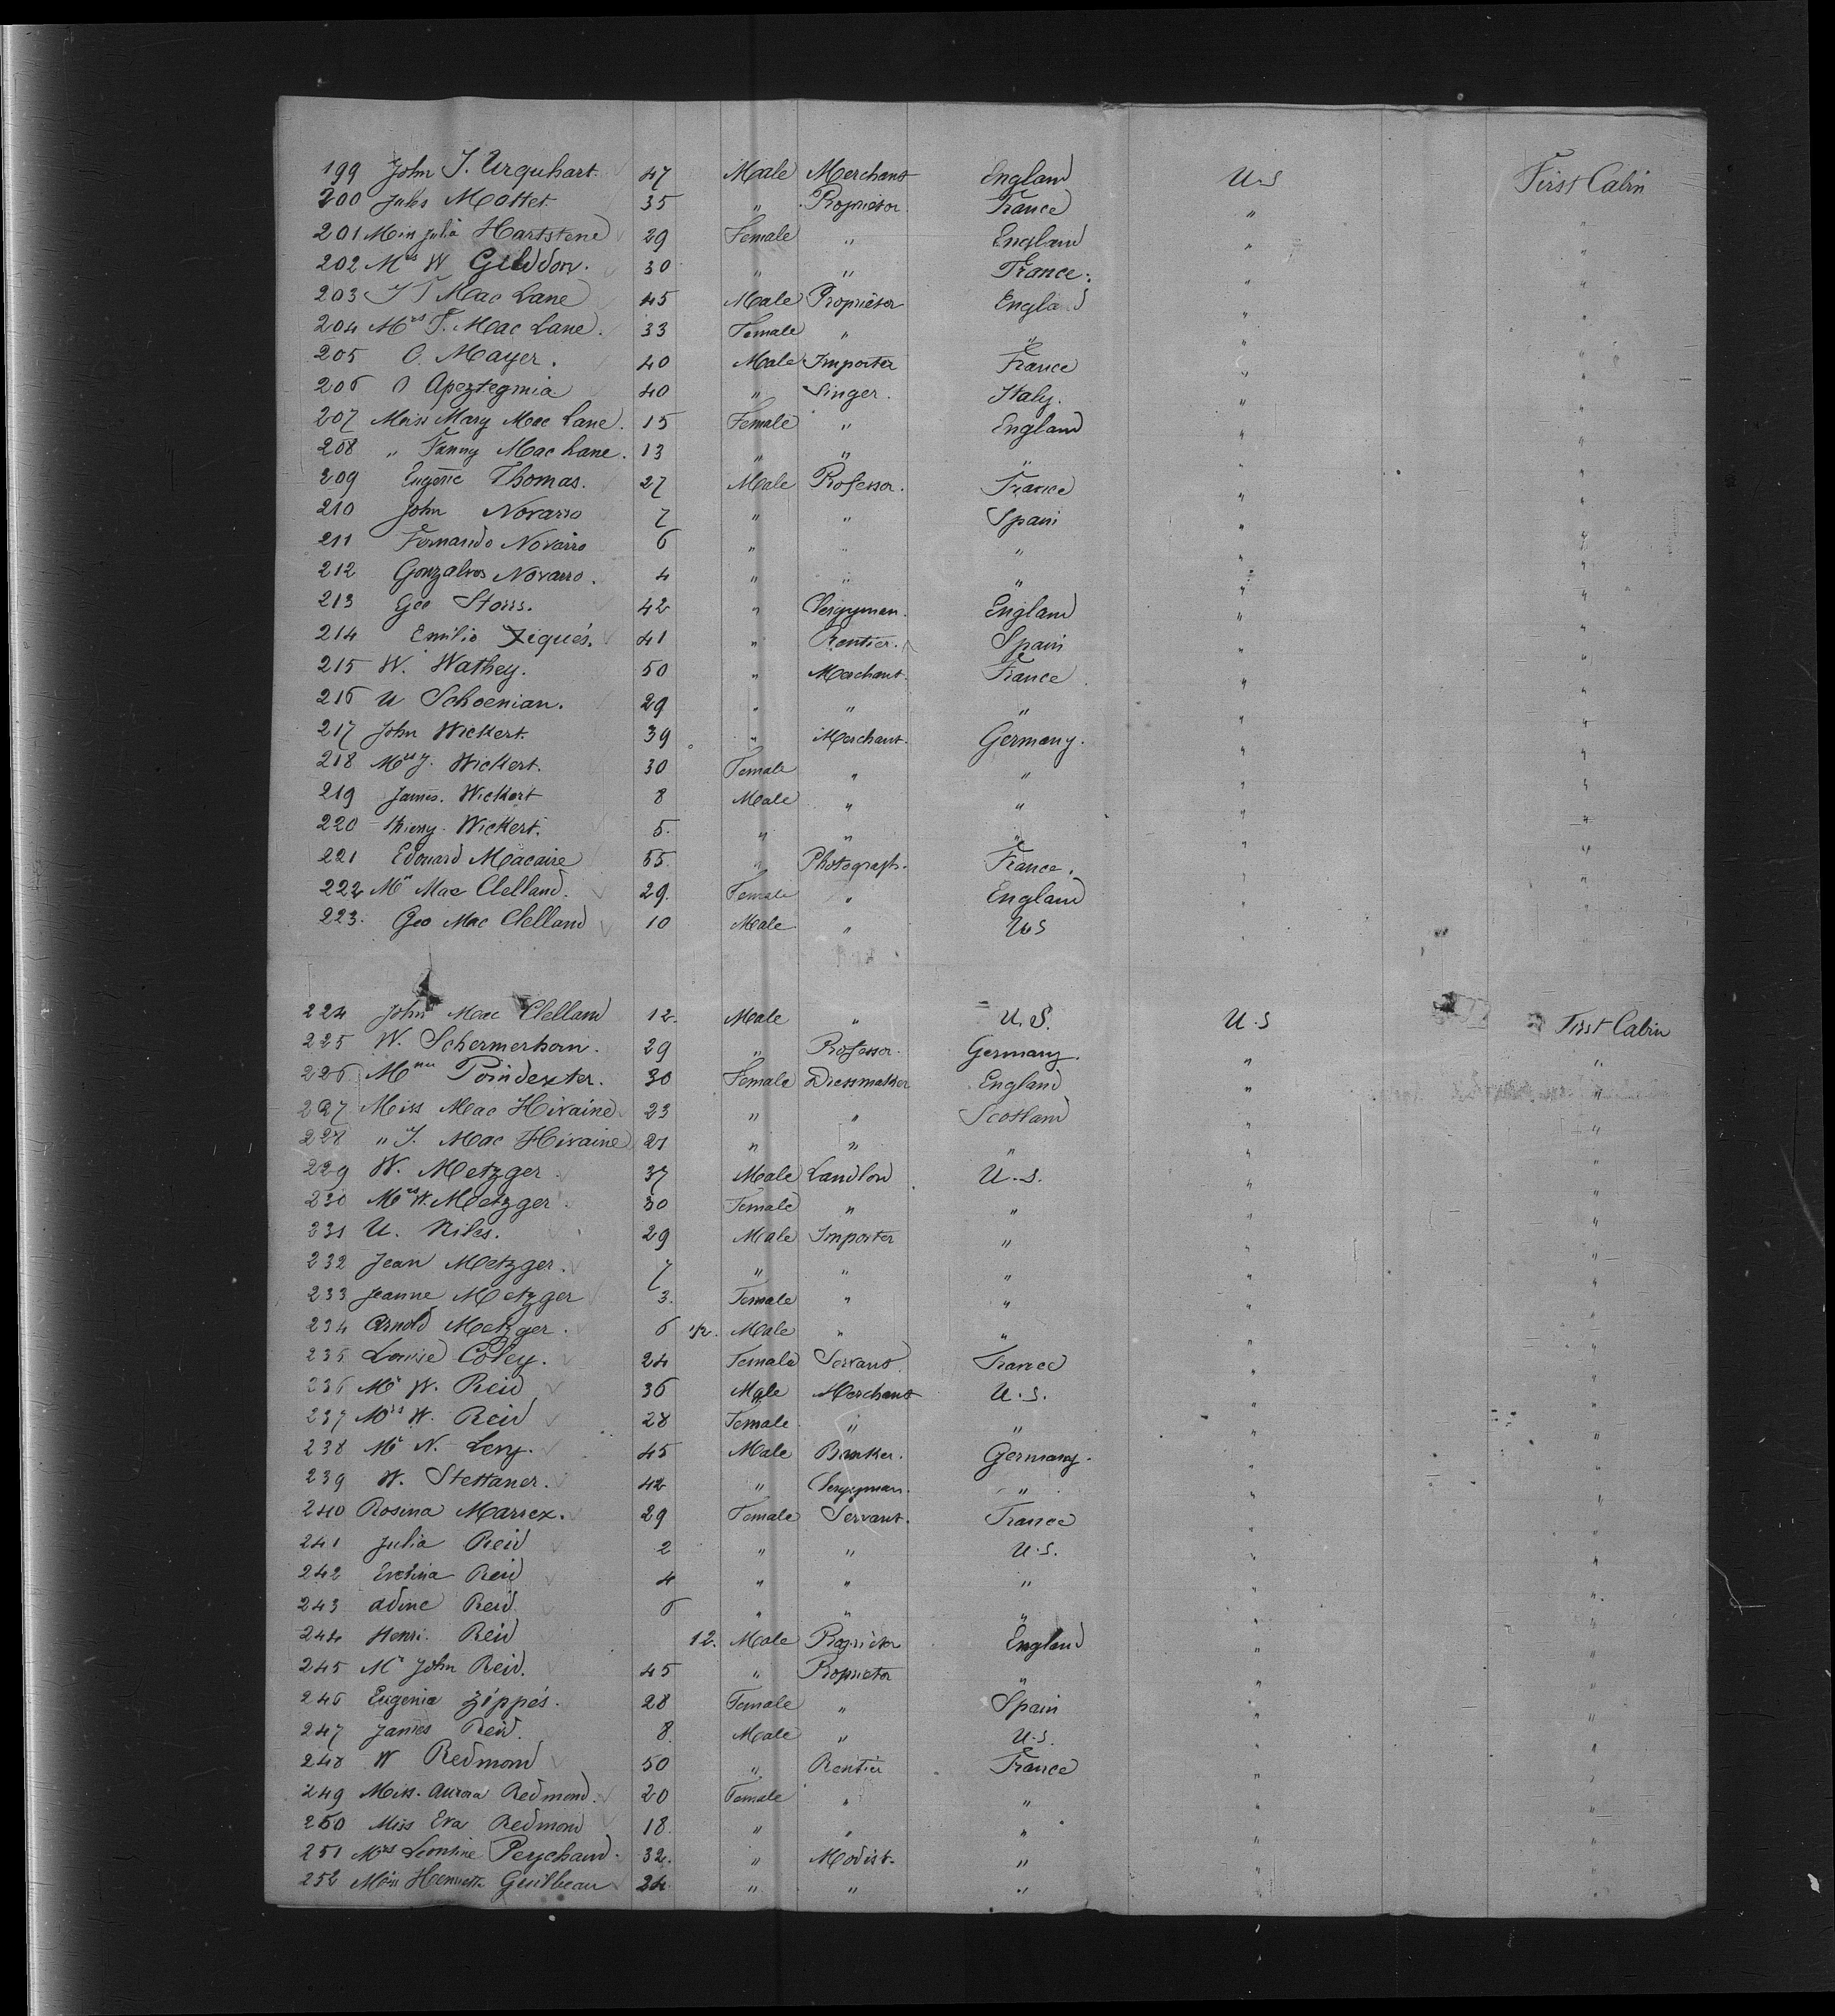 199 John J. Urquhart 47 Male Merchant England U.S First Cabin
200 Jules Mottet 35 " Proprietor France " "
201 Miss Julia Hartstene 29 Female " England " "
202 Mrs W Gliddon. 30 " " France. " "
203 J T Mac Lane 45 Male Proprietor England " "
204 Mrs T. Mac Lane. 33 Female " " " "
205 O. Mayer. 40 Male Importer France " "
206 O Apeztegmia 40 " Singer. Italy. " "
207 Miss Mary Mac Lane. 15 Female " England " "
208 " Fanny Mac Lane. 13 " " " " "
209 Eugene Thomas. 27 Male Professor. France " "
210 John Novarro 7 " " Spain " "
211 Fernando Novarro 6 " " " " "
212 Gonzalvos Novarro. 4 " " " " "
213 Geo Storrs. 42 " Clergyman. England " "
214 Emilio Xiqués. 41 " Rentier. Spain " "
215 W. Wathey. 50 " Merchant. France " "
216 U Schoenian. 29 " " " " "
217 John Wickert. 39 " Merchant. Germany. " "
218 Mrs J. Wickert. 30 Female " " " "
219 James. Wickert 8 Male " " " "
220 Thierry. Wickert. 5. " " " " "
221 Edouard Macaire 55. " Photograph. France. " "
222 Mrs Mac Clelland. 29. Female " England " "
223. Geo Mac Clelland 10 Male " U.S " "
224 John Mac Clelland 12. Male " U.S. U.S First Cabin
225 W. Schermerhorn. 29 " Professor. Germany. " "
226 Mme Poindexter. 30 Female Dressmaker England " "
227 Miss Mac Hivaine 23 " " Scotland " "
228 " J. Mac Hivaine 21 " " " " "
229 W. Metzger 37 Male Landlord U.S. " "
230 Mrs W. Metzger 30 Female " " " "
231 U. Niles. 29 Male Importer " " "
232 Jean Metzger. 7 " " " " "
233 Jeanne Metzger 3. Female " " " "
234 Arnold Metzger. 6 1/2. Male " " " "
235 Louise Coley. 24 Female Servant France " "
236 Mr W. Reid 36 Male Merchant U.S. " "
237 Mrs W. Reid 28 Female " " " "
238 Mr N. Levy. 45 Male Banker. Germany. " "
239 W. Stettaner. 42 " Clergyman. " " "
240 Rosina Marrex. 29 Female Servant. France " "
241 Julia Reid 2 " " U.S. " "
242 Evelina Reid 4 " " " " "
243 Adine Reid 6 " " " " "
244 Henri. Reid 12. Male Proprietor England " "
245 Mr John Reid. 45 " Proprietor " " "
246 Eugenia Zippés. 28 Female " Spain " "
247 James Reid. 8. Male " U.S. " "
248 W Redmond 50 " Rentier France " "
249 Miss. Aurora Redmond. 20 Female " " " "
250 Miss Eva Redmond 18. " " " " "
251 Mrs Leontine Peychaud. 32. " Modist. " " "
252 Miss Henriette Guilbeau 24. " " " " "